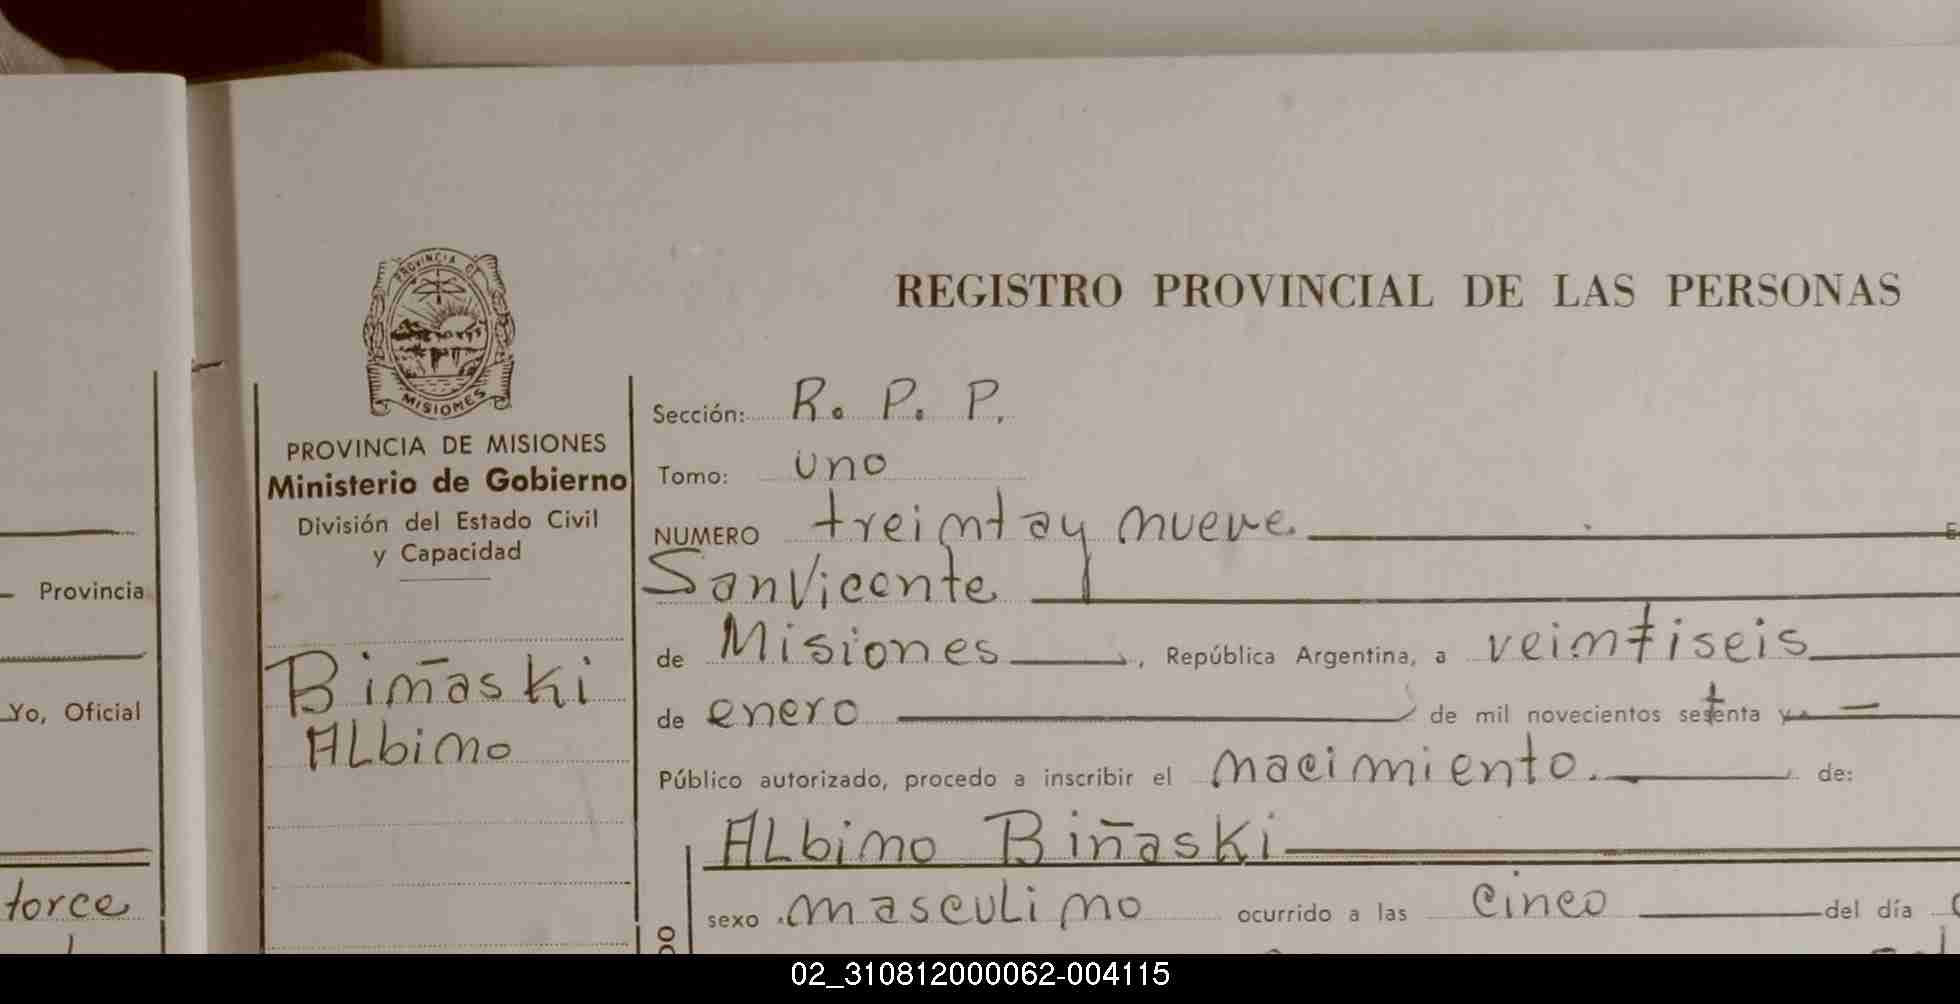 REGISTRO PROVINCIAL DE LAS PERSONAS
PROVINCIA DE
MISIONES
PROVINCIA DE MISIONES
Ministerio de Gobierno
División del Estado Civil
y Capacidad
Biñaski
Albino
Sección: R. P. P.
Tomo: uno
NUMERO treinta y nueve
San Vicente
de Misiones, República Argentina, a veintiseis
de enero de mil novecientos setenta y
Público autorizado, procedo a inscribir el nacimiento. de:
Albino Biñaski
sexo masculino ocurrido a las cinco del día
Provincia
Yo, Oficial
torce
02_310812000062-004115